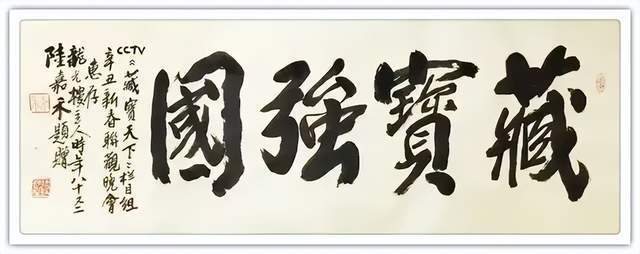 藏寶強國
CCTV《藏寶天下》栏目组
辛丑新春聯歡晚會
惠存
龍樓主人時年八十又二
陸嘉禾題贈